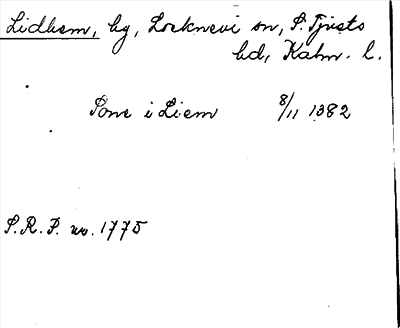 Lidhem, by, Locknevi sn, S. Tjusts
hd, Kalm. l.
Pone i Liem 8/11 1382
S.R.P. no. 1775